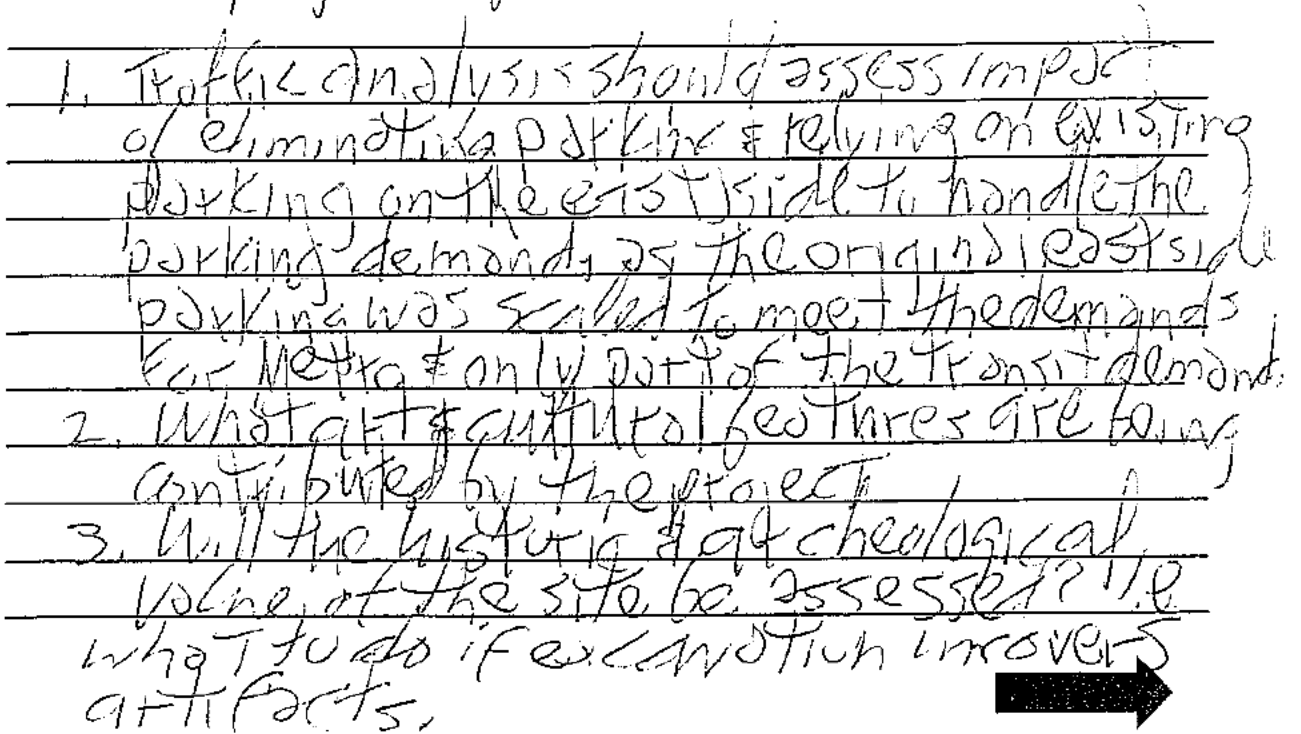 1. Traffic analysis should assess impact
of eliminating parking & relying on existing
parking on the east side to handle the
parking demand, as the original east side
parking was scaled to meet the demands
for Metro & only part of the transit demand.
2. What arts & cultural features are being
contributed by the project
3. Will the historic & archeological
value of the site be assessed? I.e
what to do if excavation uncovers
artifacts.